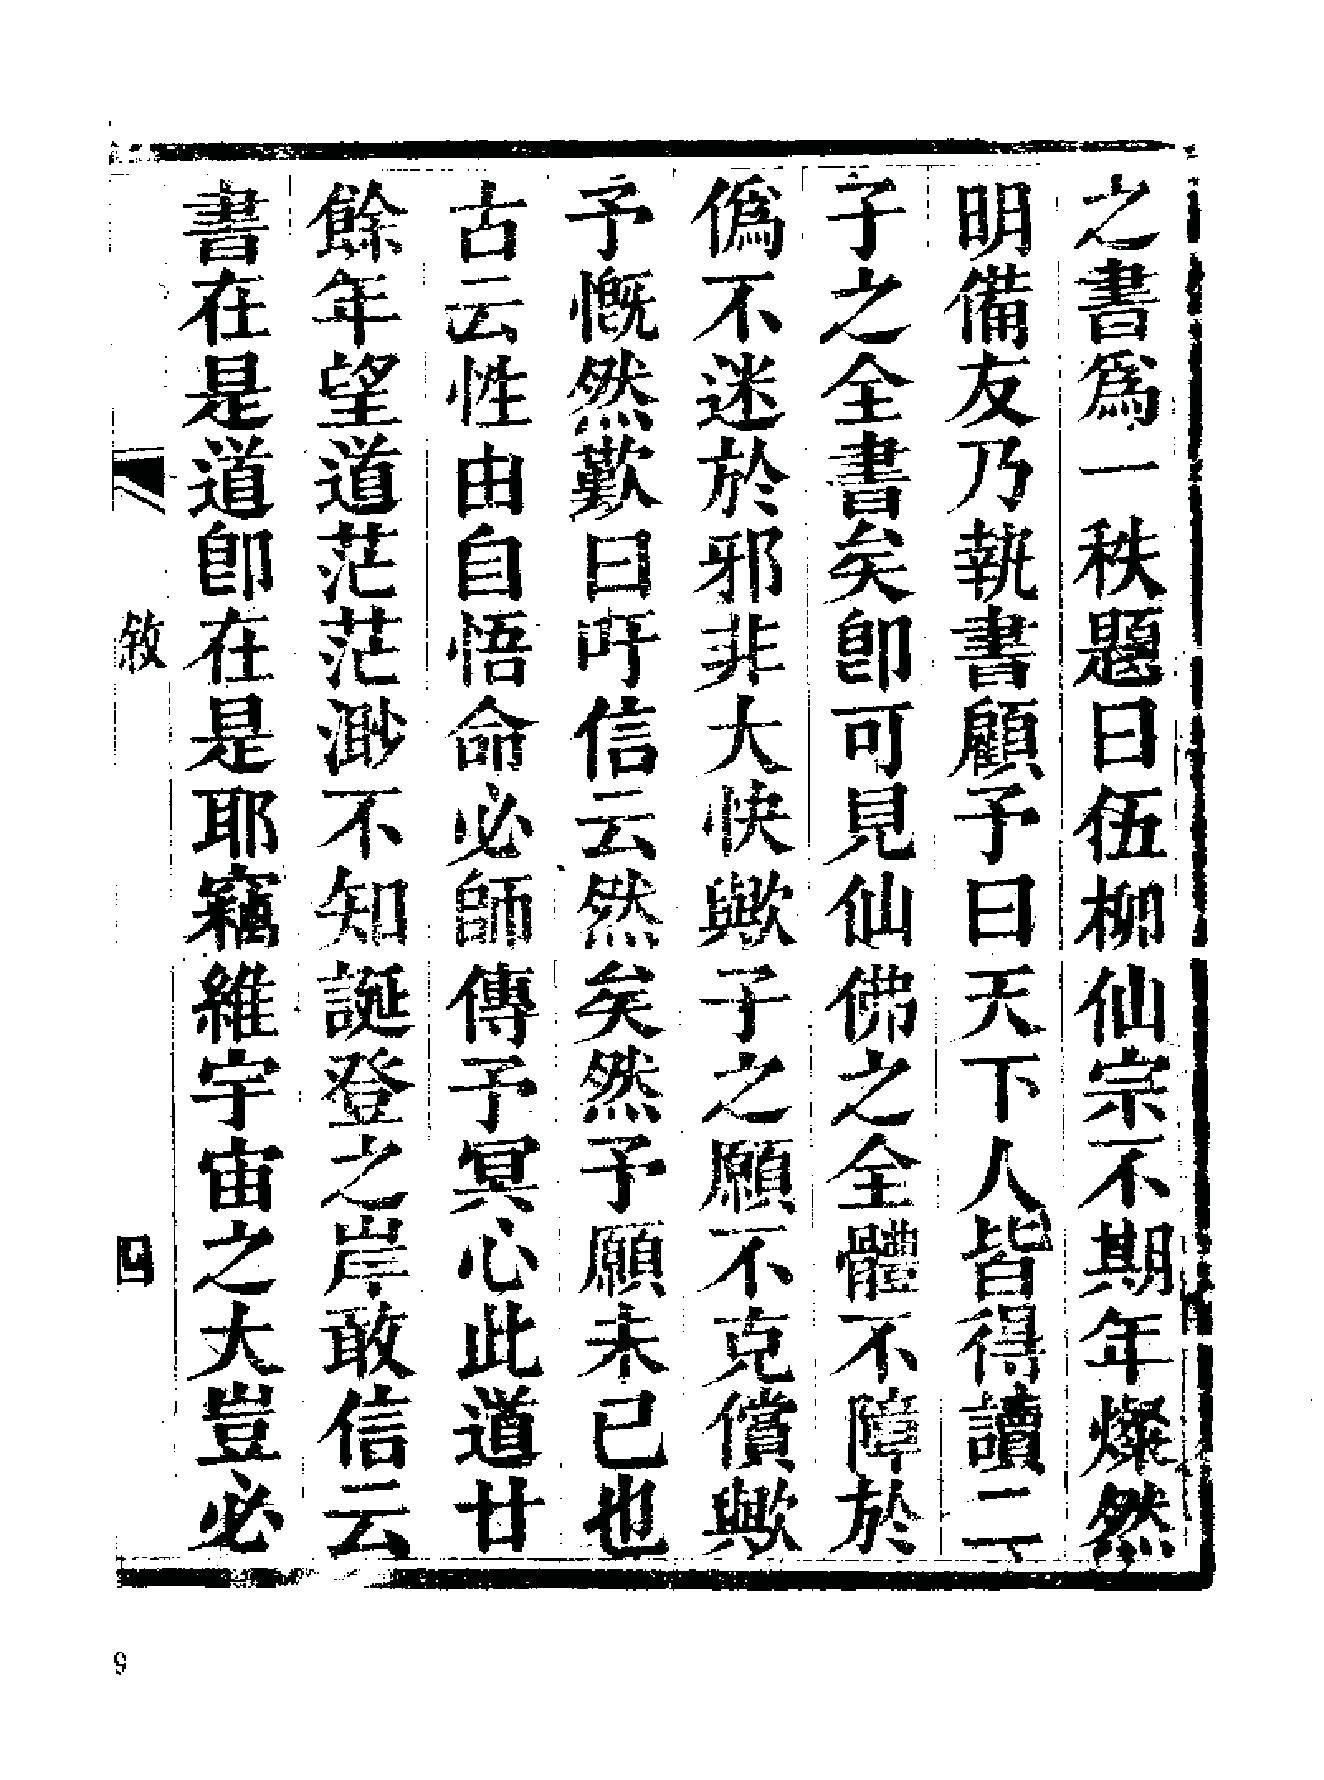 之書爲一秩題曰伍柳仙宗不期年燦然
明備友乃執書顧予曰天下人皆得讀二
子之全書矣卽可見仙佛之全體不障於
僞不迷於邪非大快歟子之願不克償歟
予慨然歎曰吁信云然矣然予願未已也
古云性由自悟命必師傳予冥心此道廿
餘年望道茫茫渺不知誕登之岸敢信云
書在是道卽在是耶竊維宇宙之大豈必
敘
四
9